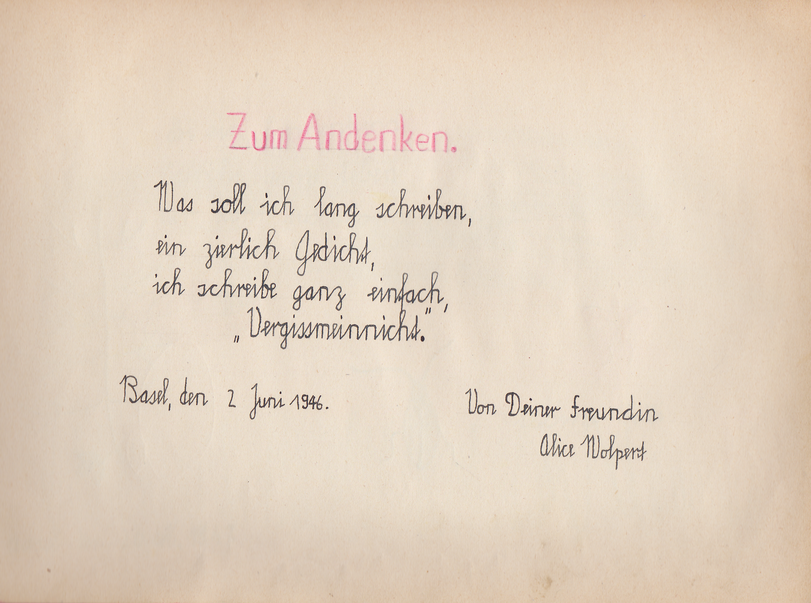 Zum Andenken.
Was soll ich lang schreiben,
ein zierlich Gedicht,
ich schreibe ganz einfach,
„Vergissmeinnicht."
Basel, den 2 Juni 1946.
Von Deiner Freundin
Alice Wolpert